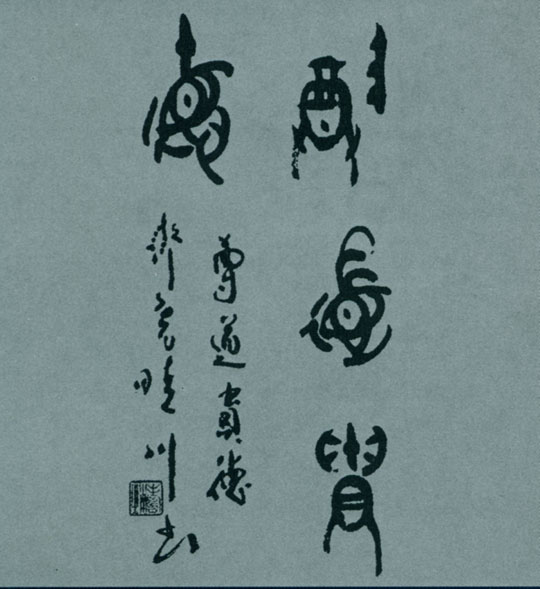 尊道貴
德
尊道貴德
晴川书